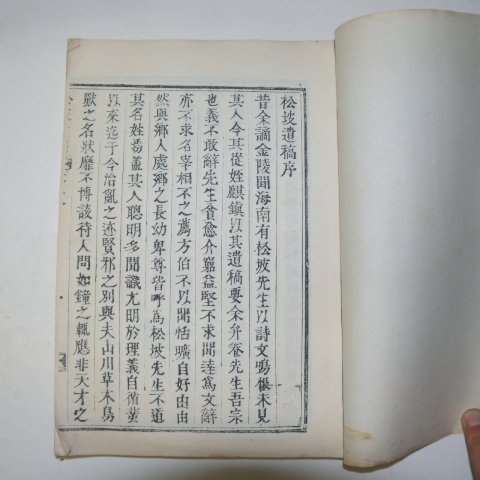 松坡遺稿序
昔余謫金陵聞海南有松坡先生以詩文鳴恨未見
其人今其從姪麒鎭以其遺稿要余弁卷先生吾宗
也義不敢辭先生貧愈介窮益堅不求聞達爲文辭
亦不求名宰相不之薦方伯不以聞恬曠自好由由
然與鄉人處鄉之長幼卑尊皆呼爲松坡先生不道
其名姓焉盖其人聰明多聞識尤明於理義自循蜚
以來迄于今治亂之迹賢邪之別與夫山川草木鳥
獸之名狀靡不博該待人問如鐘之輒應非天才之